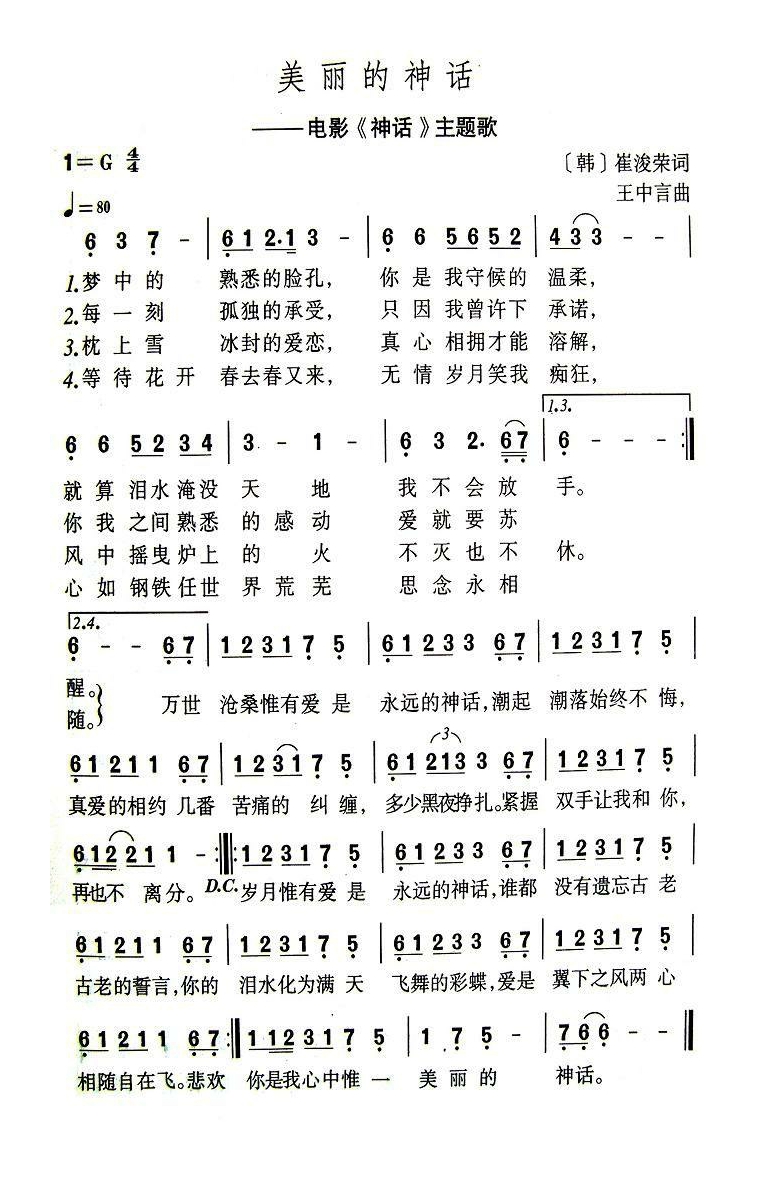 美丽的神话
——电影《神话》主题歌
1=G 4/4
〔韩〕崔浚荣词
♩=80
王中言曲
6 3 7 - | 6 1 2·1 3 - | 6 6 5 6 5 2 | 4 3 3 - - |
1.梦中的 熟悉的脸孔， 你是我守候的 温柔，
2.每一刻 孤独的承受， 只因我曾许下 承诺，
3.枕上雪 冰封的爱恋， 真心相拥才能 溶解，
4.等待花开 春去春又来， 无情岁月笑我 痴狂，
1.3.
6 6 5 2 3 4 | 3 - 1 - | 6 3 2· 6 7 | 6 - - - :‖
就算泪水淹没 天地 我不会放 手。
你我之间熟悉 的感动 爱就要苏
风中摇曳炉上 的火 不灭也不 休。
心如钢铁任世 界荒芜 思念永相
2.4.
6 - - 6 7 | 1 2 3 1 7 5 | 6 1 2 2 3 3 6 7 | 1 2 3 1 7 5 |
醒。
随。
万世 沧桑惟有爱是 永远的神话，潮起 潮落始终不悔，
6 1 2 1 1 6 7 | 1 2 3 1 7 5 | 6 1 2 1 3 3 6 7 | 1 2 3 1 7 5 |
3
真爱的相约 几番 苦痛的 纠缠， 多少黑夜挣扎。紧握 双手让我和你，
6 1 2 2 1 1 - :‖: 1 2 3 1 7 5 | 6 1 2 2 3 3 6 7 | 1 2 3 1 7 5 |
再也不 离分。 D.C. 岁月惟有爱是 永远的神话，谁都 没有遗忘古老
6 1 2 1 1 6 7 | 1 2 3 1 7 5 | 6 1 2 2 3 3 6 7 | 1 2 3 1 7 5 |
古老的誓言，你的 泪水化为满天 飞舞的彩蝶，爱是 翼下之风两心
6 1 2 1 1 6 7 :‖ 1 1 2 3 1 7 5 | 1 7 5 - | 7 6 6 - - ‖
相随自在飞。悲欢 你是我心中惟一 美丽的 神话。